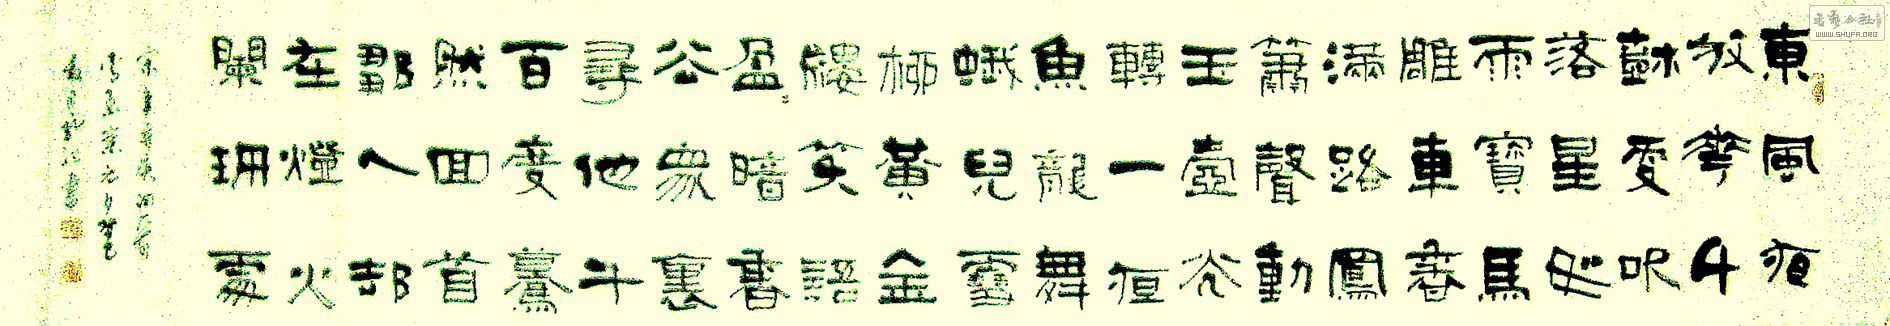 東風夜
放花千
樹更吹
落星如
雨寶馬
雕車香
滿路鳳
簫聲動
玉壺光
轉一夜
魚龍舞
蛾兒雪
柳黃金
縷笑語
盈〻暗香
去眾裏
尋他千
百度驀
然回首
那人却
在燈火
闌珊處
宋辛棄疾詞
青玉案元夕
WWW.SHUFA.ORG